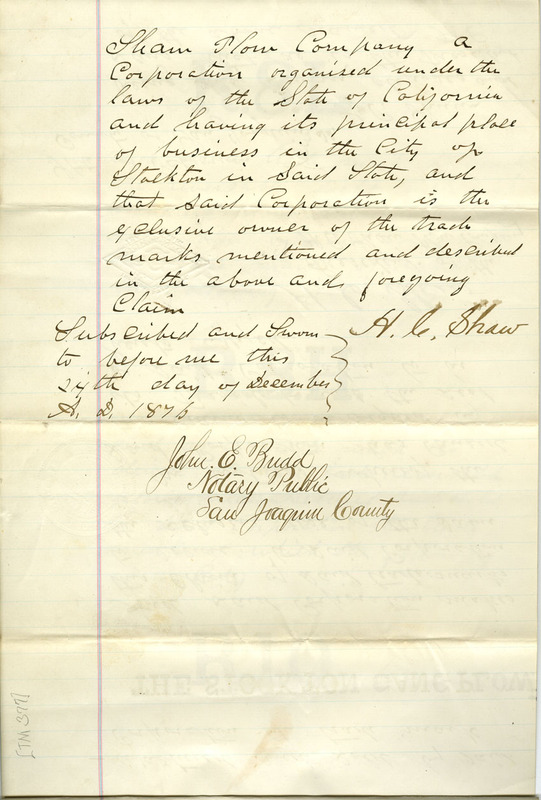 Shaw Plow Company a
Corporation organised under the
laws of the State of California
and having its principal place
of business in the City of
Stockton in Said State, and
that said Corporation is the
exclusive owner of the trade
marks mentioned and described
in the above and foregoing
Claim
H. C. Shaw
Subscribed and Sworn
to before me this
sixth day of December
A. D. 1876
John. E. Budd
Notary Public
San Joaquin County
[TM 377]
THE STOCKTON GANG PLOW